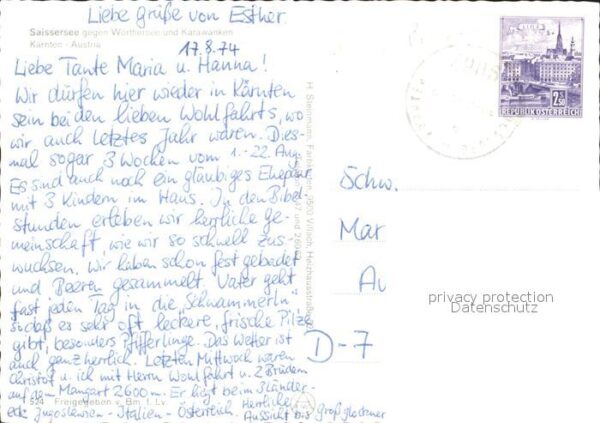 Liebe Grüße von Esther
Saissersee gegen Wörthersee und Karawanken
Kärnten - Austria
17.8.74
Liebe Tante Maria u. Hanna!
Wir dürfen hier wieder in Kärnten
sein bei den lieben Wohlfahrts, wo
wir auch letztes Jahr waren. Dies-
mal sogar 3 Wochen vom 1.-22. Aug.
Es sind auch noch ein gläubiges Ehepaar
mit 3 Kindern im Haus. In den Bibel-
stunden erleben wir herrliche Ge-
meinschaft, wie wir so schnell zus.
wuchsen. Wir haben schon fest gebadet
und Beeren gesammelt. Vater geht
fast jeden Tag in die „Schwammerln"
sodaß es sehr oft leckere, frische Pilze
gibt, besonders Pfifferlinge. Das Wetter ist
auch ganz herrlich. Letzten Mittwoch waren
Christof u. ich mit Herrn Wohlfahrt u. 2 Brüdern
auf dem Mangart 2600m. Er liegt beim 3länder-
eck Jugoslawien - Italien - Österreich. Herrliche
Aussicht bis Großglockner
524 Freigegeben v. Bm. f. Lv.
2.50
REPUBLIK ÖSTERREICH
Schw.
Mar
Au
D-7
privacy protection
Datenschutz